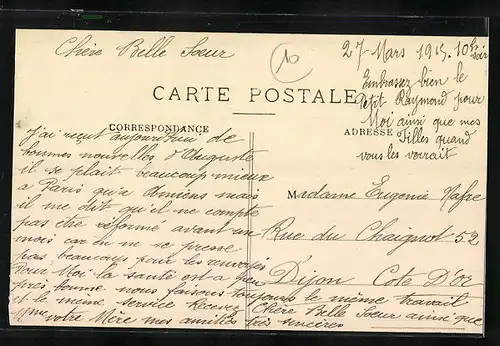 Chère Belle Sœur
27 Mars 1915. 10h soir
10
Embrassez bien le
Petit Raymond pour
Moi ainsi que mes
Filles quand
vous les verrait
CARTE POSTALE
CORRESPONDANCE
ADRESSE
J'ai reçut aujourd'hui de
bonnes nouvelles d'Auguste
il se plait beaucoup mieux
a Paris qu'a Amiens mais
il me dit qu'il ne compte
pas être réformé avant un
mois car on ne se presse
pas beaucoup pour les renvoyés
Pour Moi la santé est a peu
près bonne nous faisons toujours le même travail
et le même service Recevez Chère Belle Sœur ainsi que
votre Mère mes amitiés très sincères
Madame Eugenie
Rue du Chaignot 52
Dijon Cote D'Or